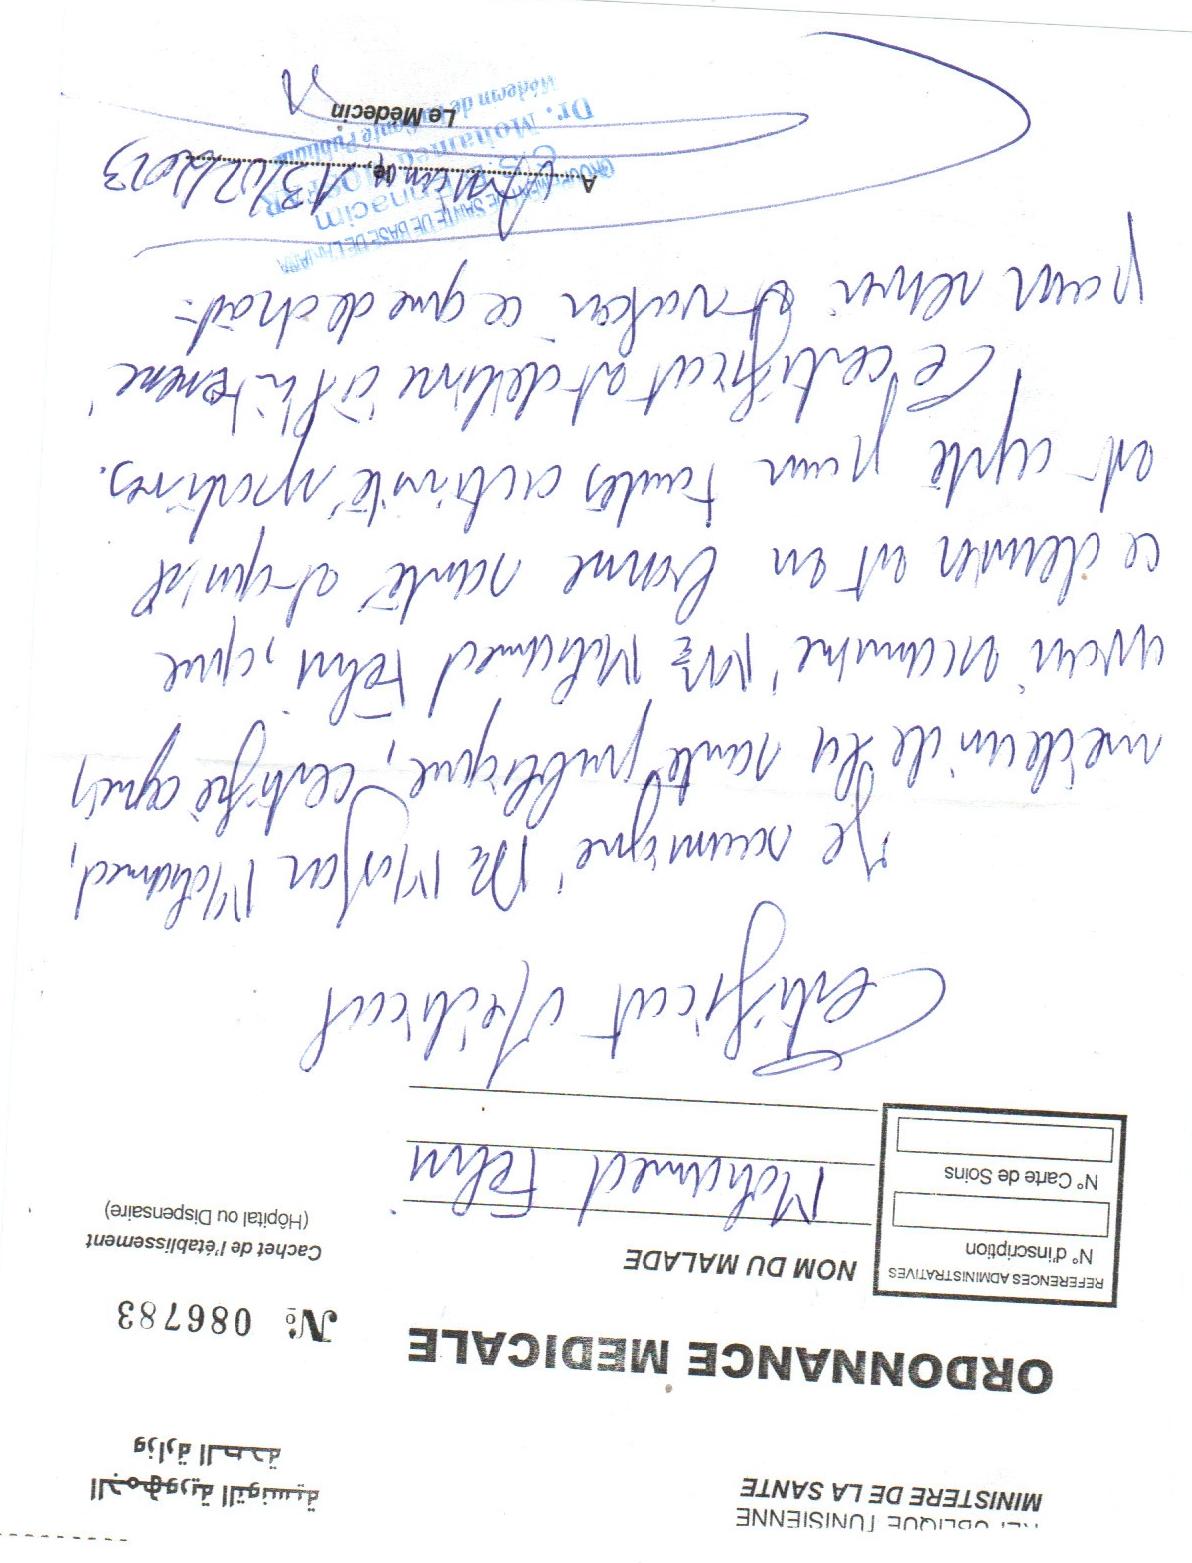 REPUBLIQUE TUNISIENNE
MINISTERE DE LA SANTE
الجمهورية التونسية
وزارة الصحة
ORDONNANCE MEDICALE
№ 086783
REFERENCES ADMINISTRATIVES
N° d'inscription
N° Carte de Soins
NOM DU MALADE
Mohamed Fehri
Cachet de l'établissement
(Hôpital ou Dispensaire)
Certificat Médical
Je soussigné Dr Mosfar Mohamed,
médecin de la santé publique, certifie après
avoir examiné Mr Mohamed Fehri, que
ce dernier est en bonne santé et qu'il
est apte pour toutes activité sportives.
Ce certificat est délivré à l'intéressé
pour servir et valoir ce que de droit.
GROUPEMENT DE SANTE DE BASE DE L'ARIANA
C.S.B. Ennacim
Dr. Mohamed
Médecin de la Santé Publique
A Ariana, le 13/02/2023
Le Médecin